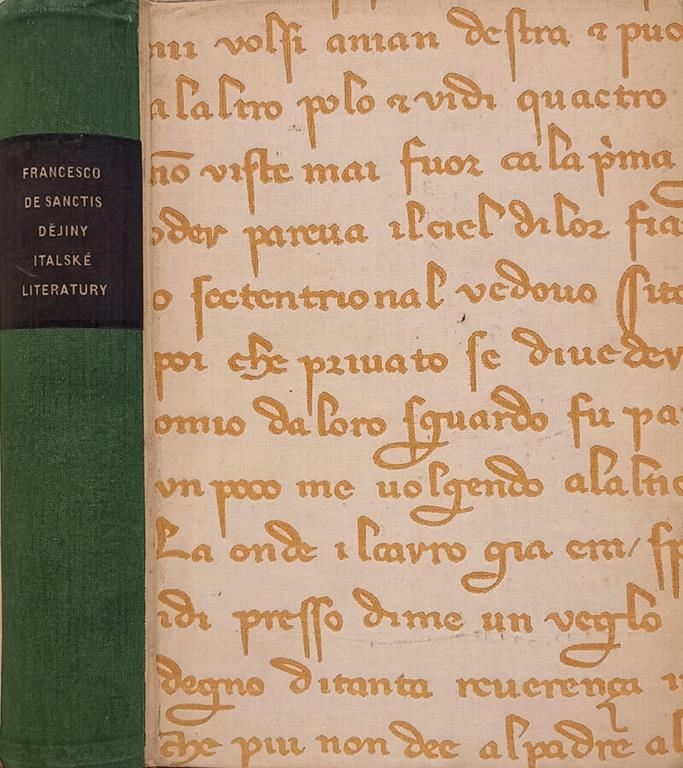 FRANCESCO
DE SANCTIS
DĚJINY
ITALSKÉ
LITERATURY
mi volsi aman destra ⁊ puo
alaltro polo ⁊ vidi quactro
nō viste mai fuor cala p̀ma
oder pareua ilciel dilor fia
o sectentrional vedouo sito
poi che priuato se diueder
omio daloro sguardo fu pa
vn poco me uolgendo alaltro
La onde ilcarro gia em/ sp
idi presso dime un veglo
degno ditanta reuerença
che piu non dee alpadre al